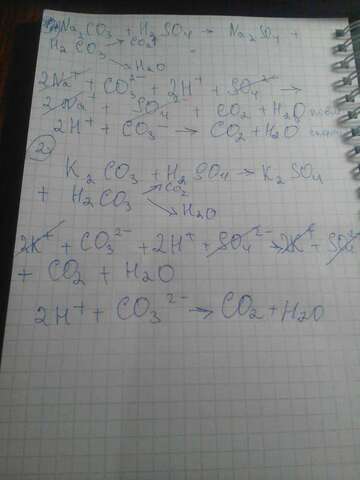 Na2CO3 + H2SO4 → Na2SO4 +
H2CO3 → CO2↑
→ H2O
2Na+ + CO3 2- + 2H+ + SO4 2- →
2Na+ + SO4 2- + CO2 + H2O
2H+ + CO3 - → CO2 + H2O
2
K2CO3 + H2SO4 → K2SO4
+ H2CO3 → CO2
→ H2O
2K+ + CO3 2- + 2H+ + SO4 2- → 2K+ + SO4 2-
+ CO2 + H2O
2H+ + CO3 2- → CO2 + H2O